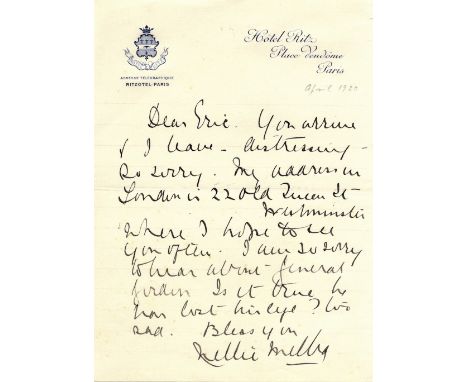 Hôtel Ritz
Place Vendôme
Paris
ADRESSE TÉLÉGRAPHIQUE
RITZOTEL-PARIS
April 1920
Dear Eric. You arrive
& I leave - distressing -
So sorry. My address in
London is 22 Old Queen St
Westminster
where I hope to see
you often. I am so sorry
to hear about General
Is it true he
has lost his eye? too
sad. Bless you
Nellie Melba